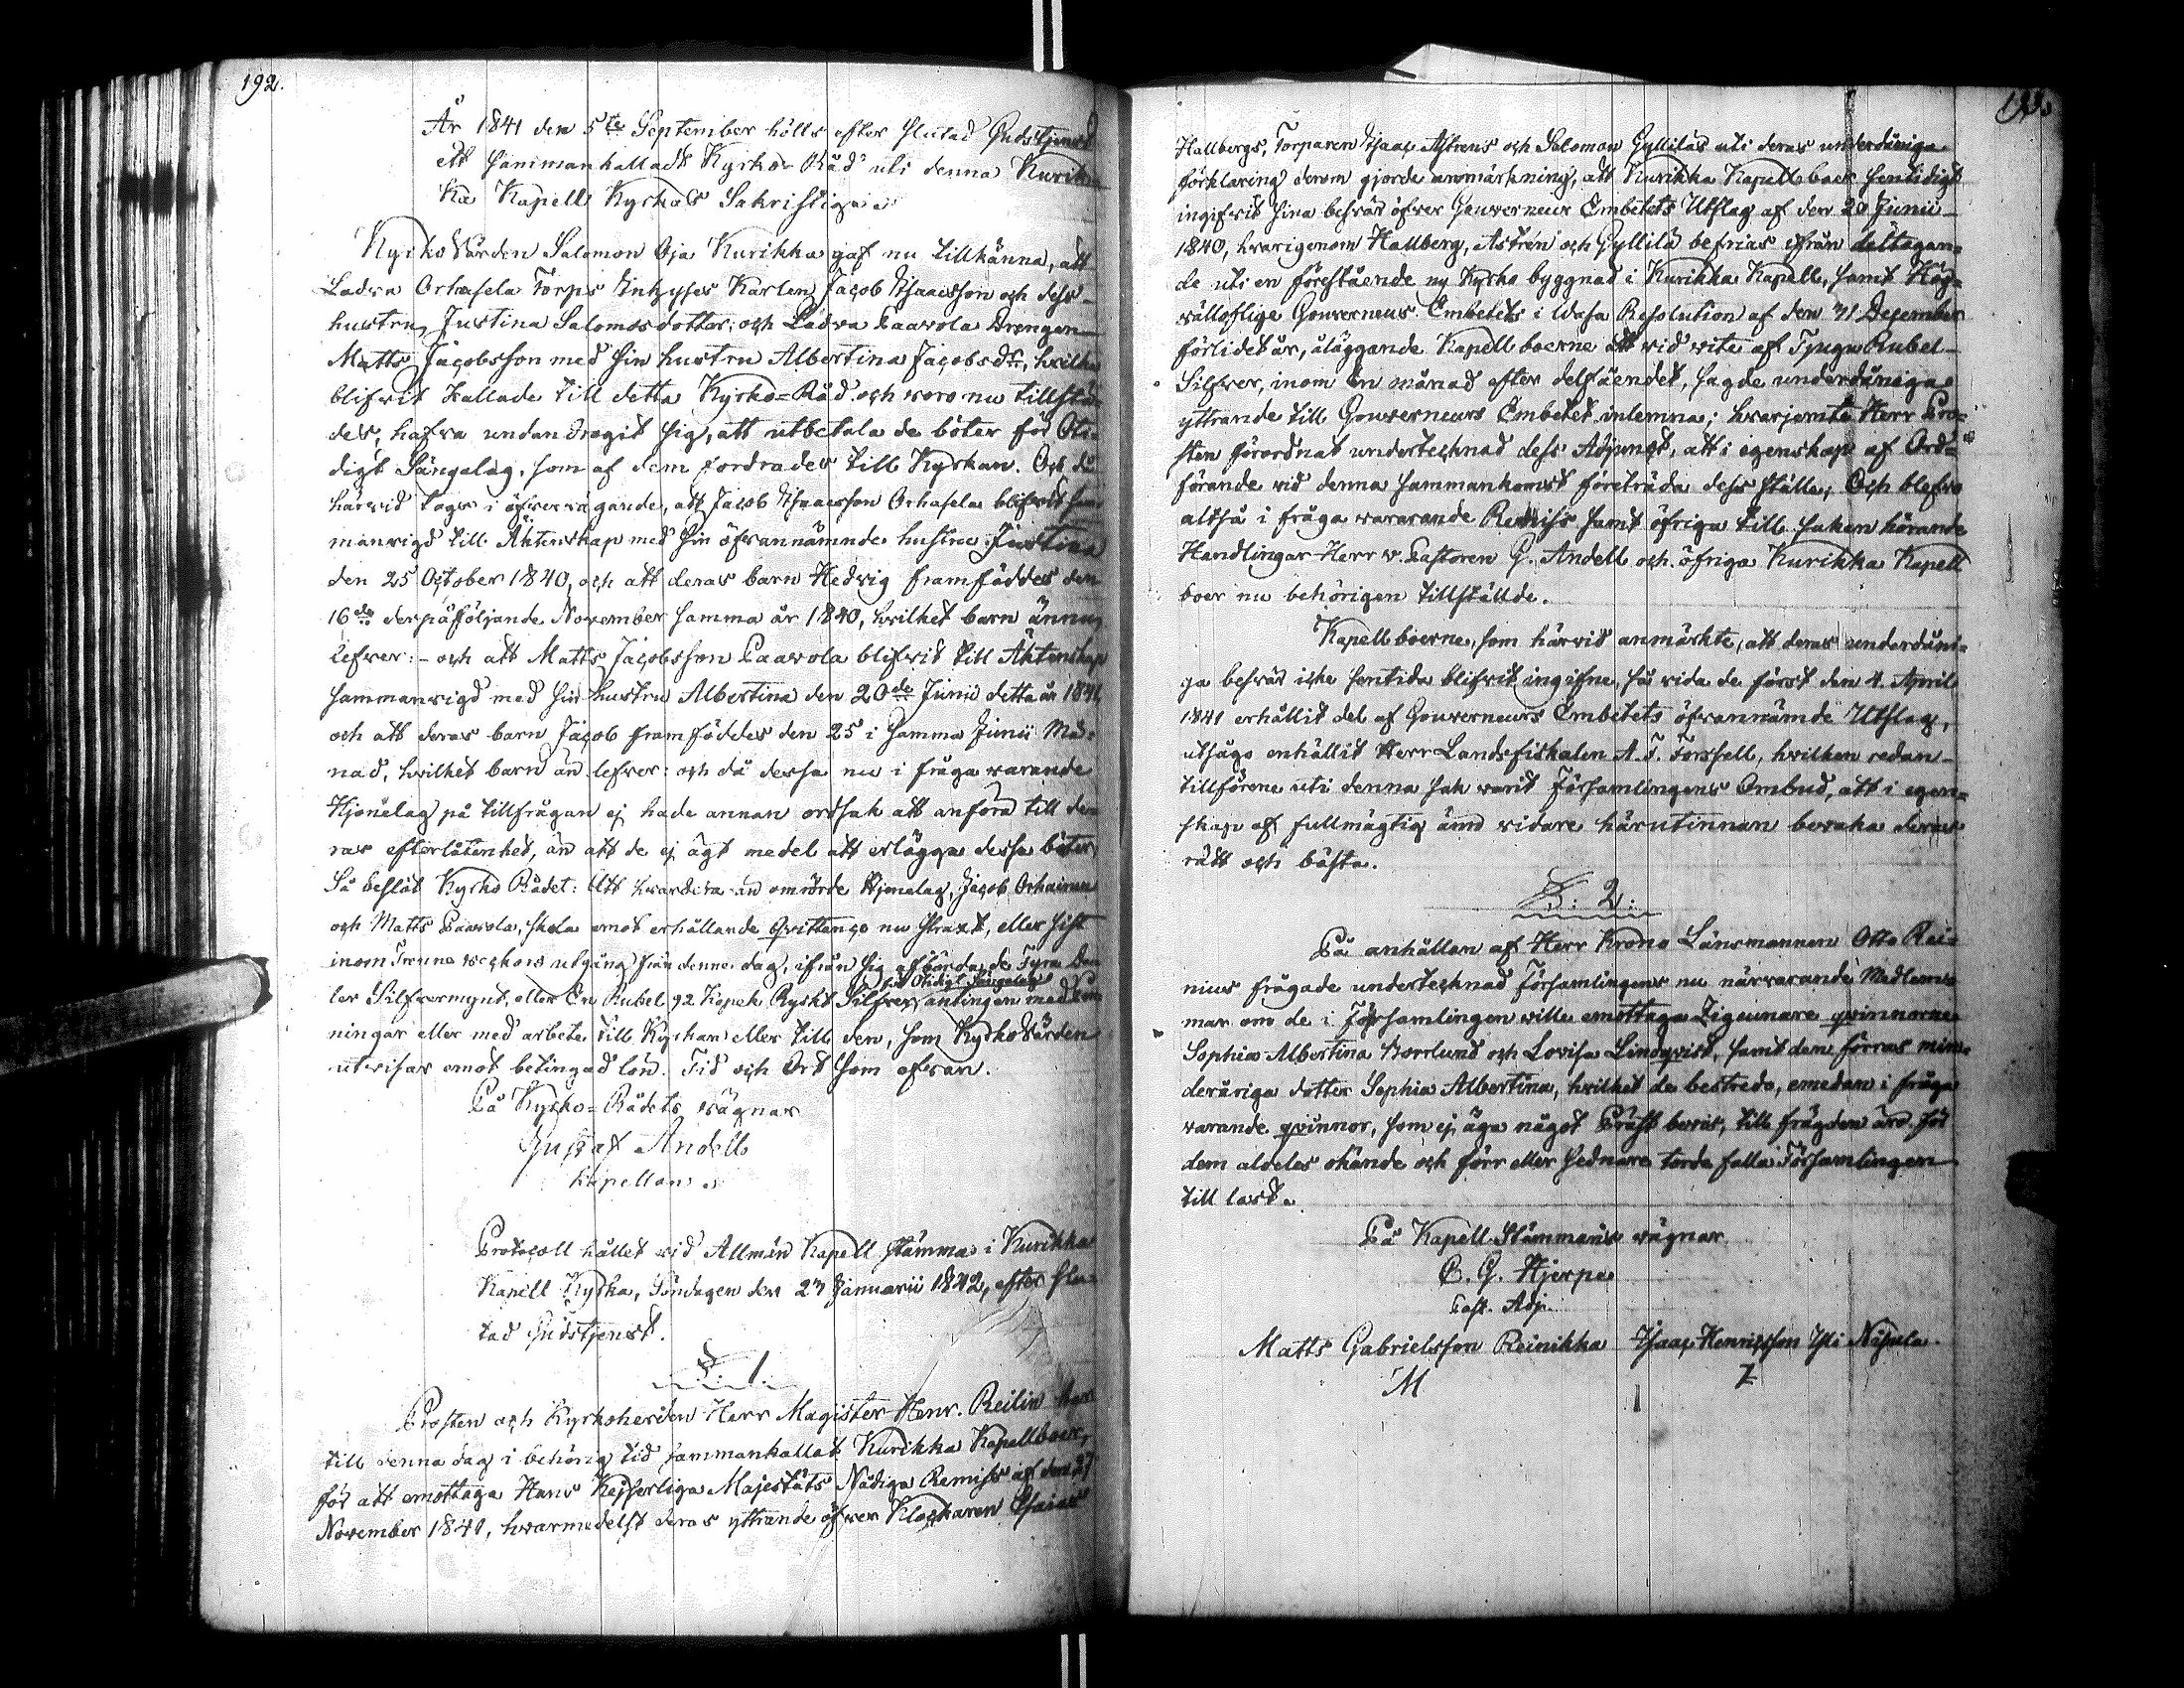 192.
År 1841 den 5te September hölls efter slutad Gudstjenst
ett sammankalladt Kyrko-Råd uti denna Kurik-
ka Kapells Kyrkas Sakristiga.
KyrkoVärden Salomon Oja Kurikka gaf nu tillkänna, att
Ladva Orhasela Torps Inhyses Karlen Jacob Isaacsson och dess
hustru Justina Salomosdotter, och Ladva Paavola Drengen
Matts Jacobsson med sin hustru Albertina Jacobsdr, hvilka
blifvit kallade till detta Kyrko-Råd och voro nu tillstä-
des, hafva undandragit sig, att utbetala de böter för Oti-
digt Sängalag, som af dem fordrades till Kyrkan. Och då
härvid togs i öfvervägande, att Jacob Isaacsson Orhasela blifvit sam-
manvigd till Äktenskap med sin ofvannämnde hustru Justina
den 25 October 1840, och att deras barn Hedvig framföddes den
16de derpåföljande November samma år 1840, hvilket barn ännu
lefver: - och att Matts Jacobsson Paavola blifvit till Äktenskap
sammanvigd med sin hustru Albertina den 20de Junii detta år 1841,
och att deras barn Jacob framföddes den 25 i samma Junii Må-
nad, hvilket barn än lefver: och då dessa nu i fråga varande
Hjonelag på tillfrågan ej hade annan orsak att anföra till de-
ras efterlåtenhet, än att de ej ägt medel att erlägga dessa böter,
Så beslöt Kyrko Rådet: Att hvardera an omrörde Hjonelag, Jacob Orhainen
och Matts Paavola, skola emot erhållande Qvittence nu straxt, eller sist
inom Trenne veckors utgång från denne dag, ifrån sig afbörda de Fyra Da-
för Otidigt Sängelag
ler Silfvermynt, eller En Rubel 92 Kopek Ryskt Silfver, antingen med
ningar eller med arbete till Kyrkan eller till den, som KyrkoVärden
utvisar emot betingad lön. Tid och Ort som ofvan.
På Kyrko-Rådets vägnar
Gustaf Andell
Kapellan.
Protocoll hållet vid Allmän Kapell stämma i Kurikka
Kapell Kyrka, Söndagen den 23 Januarii 1842, efter slu-
tad Gudstjenst.
§. 1.
Prosten och Kyrkoherden Herr Magister Henr. Reilin
till denna dag i behörig tid sammankallat Kurikka Kapellboer,
för att emottaga Hans Kejserliga Majestäts Nådiga Remiss af den 27
November 1841, hvarmedelst deras yttrande öfver Klockaren Esaias
Hallbergs, Torparen Isaac Astréns och Salomon Gyllilas uti deras underdåniga
förklaring derom gjorde anmärkning, att Kurikka Kapellboer sentidigt
ingifvit sina besvär öfver Gouverneurs Embetets Utslag af den 20 Junii
1840, hvarigenom Hallberg, Astrén och Gyllilä befrias ifrån deltagan-
de uti en förestående ny Kyrko byggnad i Kurikka Kapell, samt Hög-
vällofliga Gouverneurs Embetets i Wasa Resolution af den 31 December
förlidet år, åläggande Kapellboerne att vid vite af Tjugu Rubel
Silfver, inom En månad efter delfåendet, sagde underdåniga
yttrande till Gouverneurs Embetet inlemna; hvarjemte Herr Pro-
sten förordnat undertecknad dess Adjunct, att i egenskap af Ord-
förande vid denna sammankomst företräda dess ställe; Och blefvo
altså i fråga vararande Remiss samt öfriga till saken hörande
Handlingar Herr v. Pastoren G. Andell och öfriga Kurikka Kapell
boer nu behörigen tillställde.
Kapellboerne, som härvid anmärkte, att deras underdåni-
ga besvär icke sentida blifvit ingifne, så vida de först den 4. April
1841 erhållit del af Gouverneurs Embetets ofvannämde Utslag,
utsågo enhällit Herr Landsfiskalen A. F. Forssell, hvilken redan
tillförene uti denna sak varit Församlingens Ombud, att i egen-
skap af fullmägtig änn vidare härutinnan bevaka deras
rätt och bästa.
§: 2:
På anhållan af Herr Krono Länsmannen Otto Rei-
nius frågade undertecknad Församlingens nu närvarande Medlem-
mar om de i Församlingen ville emottaga Zigeunare qvinnorne
Sophia Albertina Borrlund och Lovisa Lindqvist, samt den förras min-
deråriga dotter Sophia Albertina, hvilket de bestredo, emedan i fråga
varande qvinnor, som ej äga något Präst bevis, till frägden äro för
dem aldeles okände och förr eller sednare torde falla Församlingen
till last.
På Kapell-Stämmans vägnar
C. G. Hjerpe
Past. Adj.
Matts Gabrielsson Reinikka Isaac Henricsson Yli Näpula
M